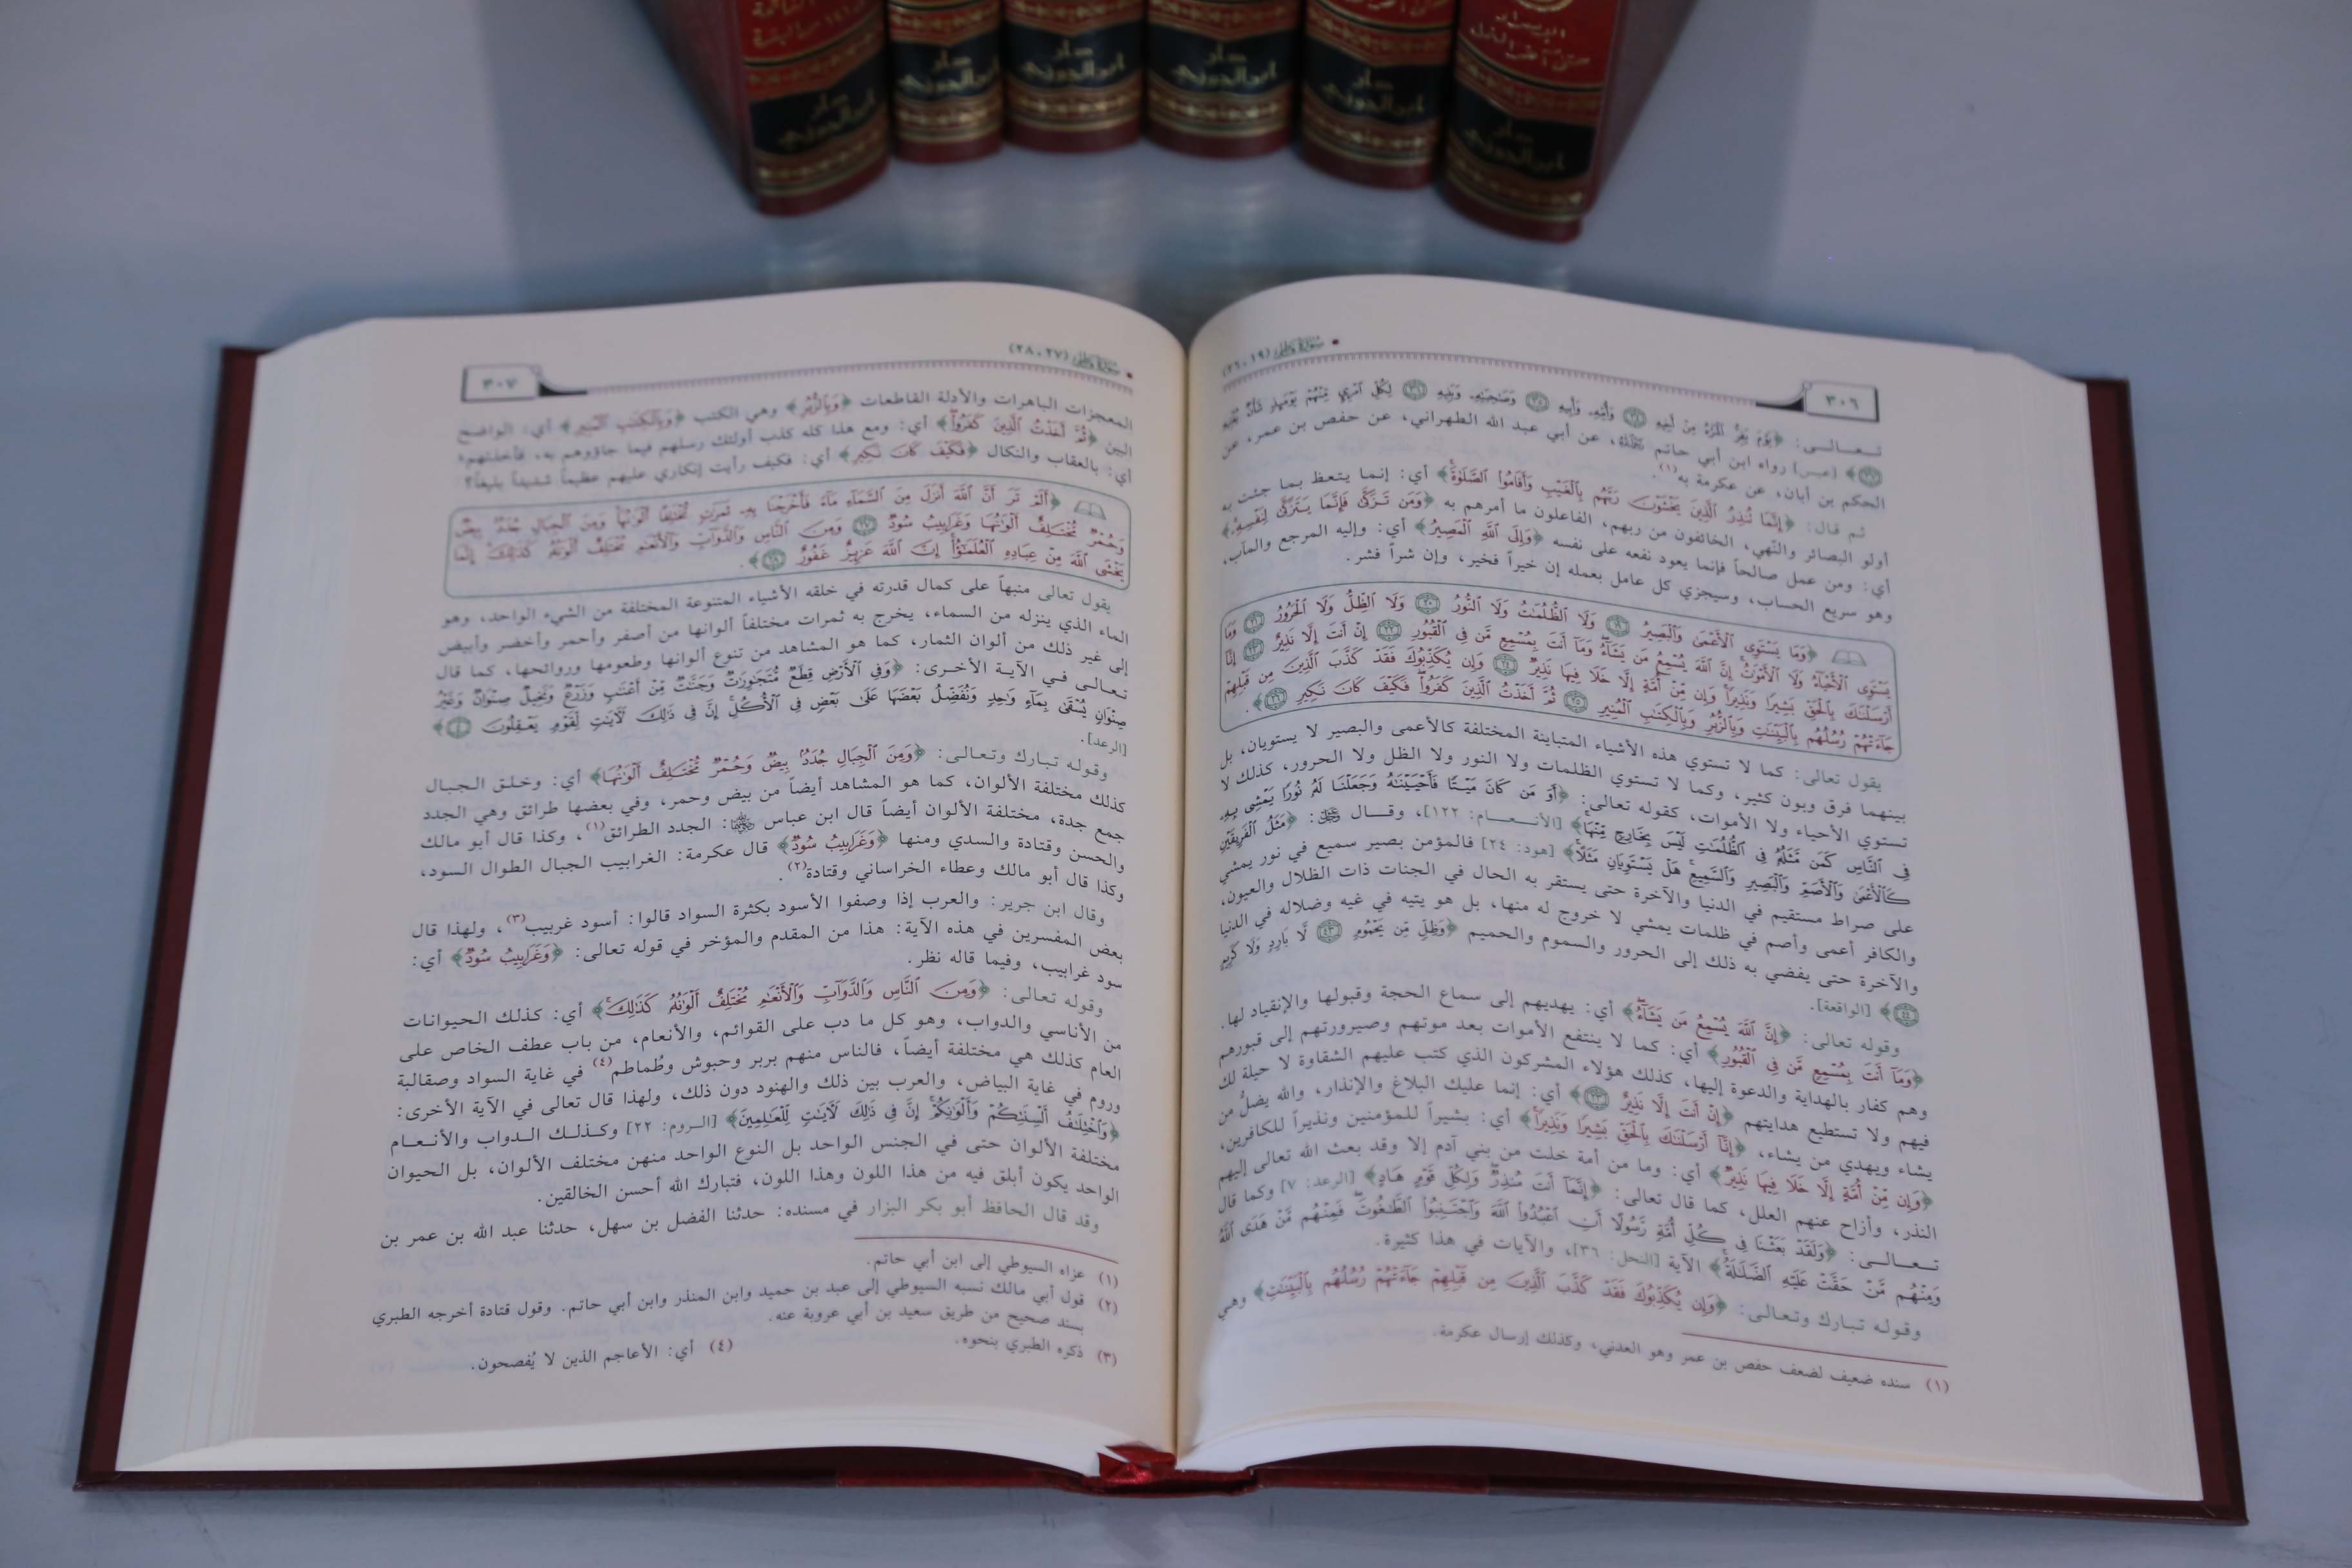 دار ابن الجوزي
دار ابن الجوزي
دار ابن الجوزي
دار ابن الجوزي
دار ابن الجوزي
دار ابن الجوزي
٣٠٦
• سُورَةُ فَاطِرٍ (١٩، ٢٦)
تـعـالـى: ﴿يَوْمَ يَفِرُّ الْمَرْءُ مِنْ أَخِيهِ ۝٣٤ وَأُمِّهِ وَأَبِيهِ ۝٣٥ وَصَاحِبَتِهِ وَبَنِيهِ ۝٣٦ لِكُلِّ امْرِئٍ مِنْهُمْ يَوْمَئِذٍ شَأْنٌ يُغْنِيهِ
۝٣٧﴾ [عبس] رواه ابن أبي حاتم رحمه الله، عن أبي عبد الله الطهراني، عن حفص بن عمر، عن
الحكم بن أبان، عن عكرمة به(١).
ثم قال: ﴿إِنَّمَا تُنذِرُ الَّذِينَ يَخْشَوْنَ رَبَّهُم بِالْغَيْبِ وَأَقَامُوا الصَّلَوٰةَ﴾ أي: إنما يتعظ بما جئت به
أولو البصائر والنهى، الخائفون من ربهم، الفاعلون ما أمرهم به ﴿وَمَن تَزَكَّىٰ فَإِنَّمَا يَتَزَكَّىٰ لِنَفْسِهِ﴾
أي: ومن عمل صالحاً فإنما يعود نفعه على نفسه ﴿وَإِلَى اللَّهِ الْمَصِيرُ﴾ أي: وإليه المرجع والمآب،
وهو سريع الحساب، وسيجزي كل عامل بعمله إن خيراً فخير، وإن شراً فشر.
﴿وَمَا يَسْتَوِي الْأَعْمَىٰ وَالْبَصِيرُ ۝١٩ وَلَا الظُّلُمَاتُ وَلَا النُّورُ ۝٢٠ وَلَا الظِّلُّ وَلَا الْحَرُورُ ۝٢١ وَمَا
يَسْتَوِي الْأَحْيَاءُ وَلَا الْأَمْوَاتُ إِنَّ اللَّهَ يُسْمِعُ مَن يَشَاءُ وَمَا أَنتَ بِمُسْمِعٍ مَّن فِي الْقُبُورِ ۝٢٢ إِنْ أَنتَ إِلَّا نَذِيرٌ ۝٢٣ إِنَّا
أَرْسَلْنَاكَ بِالْحَقِّ بَشِيرًا وَنَذِيرًا وَإِن مِّنْ أُمَّةٍ إِلَّا خَلَا فِيهَا نَذِيرٌ ۝٢٤ وَإِن يُكَذِّبُوكَ فَقَدْ كَذَّبَ الَّذِينَ مِن قَبْلِهِمْ
جَاءَتْهُمْ رُسُلُهُم بِالْبَيِّنَاتِ وَبِالزُّبُرِ وَبِالْكِتَابِ الْمُنِيرِ ۝٢٥ ثُمَّ أَخَذْتُ الَّذِينَ كَفَرُوا فَكَيْفَ كَانَ نَكِيرِ ۝٢٦﴾.
يقول تعالى: كما لا تستوي هذه الأشياء المتباينة المختلفة كالأعمى والبصير لا يستويان، بل
بينهما فرق وبون كثير، وكما لا تستوي الظلمات ولا النور ولا الظل ولا الحرور، كذلك لا
تستوي الأحياء ولا الأموات، كقوله تعالى: ﴿أَوَمَن كَانَ مَيْتًا فَأَحْيَيْنَاهُ وَجَعَلْنَا لَهُ نُورًا يَمْشِي بِهِ
فِي النَّاسِ كَمَن مَّثَلُهُ فِي الظُّلُمَاتِ لَيْسَ بِخَارِجٍ مِّنْهَا﴾ [الأنـعـام: ١٢٢]، وقـال ﷻ: ﴿مَثَلُ الْفَرِيقَيْنِ
كَالْأَعْمَىٰ وَالْأَصَمِّ وَالْبَصِيرِ وَالسَّمِيعِ هَلْ يَسْتَوِيَانِ مَثَلًا﴾ [هود: ٢٤] فالمؤمن بصير سميع في نور يمشي
على صراط مستقيم في الدنيا والآخرة حتى يستقر به الحال في الجنات ذات الظلال والعيون،
والكافر أعمى وأصم في ظلمات يمشي لا خروج له منها، بل هو يتيه في غيه وضلاله في الدنيا
والآخرة حتى يفضي به ذلك إلى الحرور والسموم والحميم ﴿وَظِلٍّ مِّن يَحْمُومٍ ۝٤٣ لَّا بَارِدٍ وَلَا كَرِيمٍ
۝٤٤﴾ [الواقعة].
وقوله تعالى: ﴿إِنَّ اللَّهَ يُسْمِعُ مَن يَشَاءُ﴾ أي: يهديهم إلى سماع الحجة وقبولها والإنقياد لها.
﴿وَمَا أَنتَ بِمُسْمِعٍ مَّن فِي الْقُبُورِ﴾ أي: كما لا ينتفع الأموات بعد موتهم وصيرورتهم إلى قبورهم
وهم كفار بالهداية والدعوة إليها، كذلك هؤلاء المشركون الذي كتب عليهم الشقاوة لا حيلة لك
فيهم ولا تستطيع هدايتهم ﴿إِنْ أَنتَ إِلَّا نَذِيرٌ ۝٢٣﴾ أي: إنما عليك البلاغ والإنذار، والله يضلُّ من
يشاء ويهدي من يشاء، ﴿إِنَّا أَرْسَلْنَاكَ بِالْحَقِّ بَشِيرًا وَنَذِيرًا﴾ أي: بشيراً للمؤمنين ونذيراً للكافرين،
﴿وَإِن مِّنْ أُمَّةٍ إِلَّا خَلَا فِيهَا نَذِيرٌ﴾ أي: وما من أمة خلت من بني آدم إلا وقد بعث الله تعالى إليهم
النذر، وأزاح عنهم العلل، كما قال تعالى: ﴿إِنَّمَا أَنتَ مُنذِرٌ وَلِكُلِّ قَوْمٍ هَادٍ﴾ [الرعد: ٧] وكما قال
تـعـالـى: ﴿وَلَقَدْ بَعَثْنَا فِي كُلِّ أُمَّةٍ رَّسُولًا أَنِ اعْبُدُوا اللَّهَ وَاجْتَنِبُوا الطَّاغُوتَ فَمِنْهُم مَّنْ هَدَى اللَّهُ
وَمِنْهُم مَّنْ حَقَّتْ عَلَيْهِ الضَّلَالَةُ﴾ الآية [النحل: ٣٦]، والآيات في هذا كثيرة.
وقوله تبارك وتعالى: ﴿وَإِن يُكَذِّبُوكَ فَقَدْ كَذَّبَ الَّذِينَ مِن قَبْلِهِمْ جَاءَتْهُمْ رُسُلُهُم بِالْبَيِّنَاتِ﴾ وهي
(١) سنده ضعيف لضعف حفص بن عمر وهو العدني، وكذلك إرسال عكرمة.
• سُورَةُ فَاطِرٍ (٢٧، ٢٨)
٣٠٧
المعجزات الباهرات والأدلة القاطعات ﴿وَبِالزُّبُرِ﴾ وهي الكتب ﴿وَبِالْكِتَابِ الْمُنِيرِ﴾ أي: الواضح
البين ﴿ثُمَّ أَخَذْتُ الَّذِينَ كَفَرُوا﴾ أي: ومع هذا كله كذب أولئك رسلهم فيما جاؤوهم به، فأخذتهم؛
أي: بالعقاب والنكال ﴿فَكَيْفَ كَانَ نَكِيرِ﴾ أي: فكيف رأيت إنكاري عليهم عظيماً شديداً بليغاً؟
﴿أَلَمْ تَرَ أَنَّ اللَّهَ أَنزَلَ مِنَ السَّمَاءِ مَاءً فَأَخْرَجْنَا بِهِ ثَمَرَاتٍ مُّخْتَلِفًا أَلْوَانُهَا وَمِنَ الْجِبَالِ جُدَدٌ بِيضٌ
وَحُمْرٌ مُّخْتَلِفٌ أَلْوَانُهَا وَغَرَابِيبُ سُودٌ ۝٢٧ وَمِنَ النَّاسِ وَالدَّوَابِّ وَالْأَنْعَامِ مُخْتَلِفٌ أَلْوَانُهُ كَذَٰلِكَ إِنَّمَا
يَخْشَى اللَّهَ مِنْ عِبَادِهِ الْعُلَمَاءُ إِنَّ اللَّهَ عَزِيزٌ غَفُورٌ ۝٢٨﴾.
يقول تعالى منبهاً على كمال قدرته في خلقه الأشياء المتنوعة المختلفة من الشيء الواحد، وهو
الماء الذي ينزله من السماء، يخرج به ثمرات مختلفاً ألوانها من أصفر وأحمر وأخضر وأبيض
إلى غير ذلك من ألوان الثمار، كما هو المشاهد من تنوع ألوانها وطعومها وروائحها، كما قال
تعالى في الآية الأخرى: ﴿وَفِي الْأَرْضِ قِطَعٌ مُّتَجَاوِرَاتٌ وَجَنَّاتٌ مِّنْ أَعْنَابٍ وَزَرْعٌ وَنَخِيلٌ صِنْوَانٌ وَغَيْرُ
صِنْوَانٍ يُسْقَىٰ بِمَاءٍ وَاحِدٍ وَنُفَضِّلُ بَعْضَهَا عَلَىٰ بَعْضٍ فِي الْأُكُلِ إِنَّ فِي ذَٰلِكَ لَآيَاتٍ لِّقَوْمٍ يَعْقِلُونَ ۝٤﴾
[الرعد].
وقوله تبارك وتعالى: ﴿وَمِنَ الْجِبَالِ جُدَدٌ بِيضٌ وَحُمْرٌ مُّخْتَلِفٌ أَلْوَانُهَا﴾ أي: وخلق الجبال
كذلك مختلفة الألوان، كما هو المشاهد أيضاً من بيض وحمر، وفي بعضها طرائق وهي الجدد
جمع جدة، مختلفة الألوان أيضاً قال ابن عباس رضي الله عنهما: الجدد الطرائق(١)، وكذا قال أبو مالك
والحسن وقتادة والسدي ومنها ﴿وَغَرَابِيبُ سُودٌ﴾ قال عكرمة: الغرابيب الجبال الطوال السود،
وكذا قال أبو مالك وعطاء الخراساني وقتادة(٢).
وقال ابن جرير: والعرب إذا وصفوا الأسود بكثرة السواد قالوا: أسود غربيب(٣)، ولهذا قال
بعض المفسرين في هذه الآية: هذا من المقدم والمؤخر في قوله تعالى: ﴿وَغَرَابِيبُ سُودٌ﴾ أي:
سود غرابيب، وفيما قاله نظر.
وقوله تعالى: ﴿وَمِنَ النَّاسِ وَالدَّوَابِّ وَالْأَنْعَامِ مُخْتَلِفٌ أَلْوَانُهُ كَذَٰلِكَ﴾ أي: كذلك الحيوانات
من الأناسي والدواب، وهو كل ما دب على القوائم، والأنعام، من باب عطف الخاص على
العام كذلك هي مختلفة أيضاً، فالناس منهم بربر وحبوش وطُماطم(٤) في غاية السواد وصقالبة
وروم في غاية البياض، والعرب بين ذلك والهنود دون ذلك، ولهذا قال تعالى في الآية الأخرى:
﴿وَاخْتِلَافُ أَلْسِنَتِكُمْ وَأَلْوَانِكُمْ إِنَّ فِي ذَٰلِكَ لَآيَاتٍ لِّلْعَالِمِينَ﴾ [الـروم: ٢٢] وكـذلـك الـدواب والأنـعـام
مختلفة الألوان حتى في الجنس الواحد بل النوع الواحد منهن مختلف الألوان، بل الحيوان
الواحد يكون أبلق فيه من هذا اللون وهذا اللون، فتبارك الله أحسن الخالقين.
وقد قال الحافظ أبو بكر البزار في مسنده: حدثنا الفضل بن سهل، حدثنا عبد الله بن عمر بن
(١) عزاه السيوطي إلى ابن أبي حاتم.
(٢) قول أبي مالك نسبه السيوطي إلى عبد بن حميد وابن المنذر وابن أبي حاتم. وقول قتادة أخرجه الطبري
بسند صحيح من طريق سعيد بن أبي عروبة عنه.
(٣) ذكره الطبري بنحوه.
(٤) أي: الأعاجم الذين لا يُفصحون.